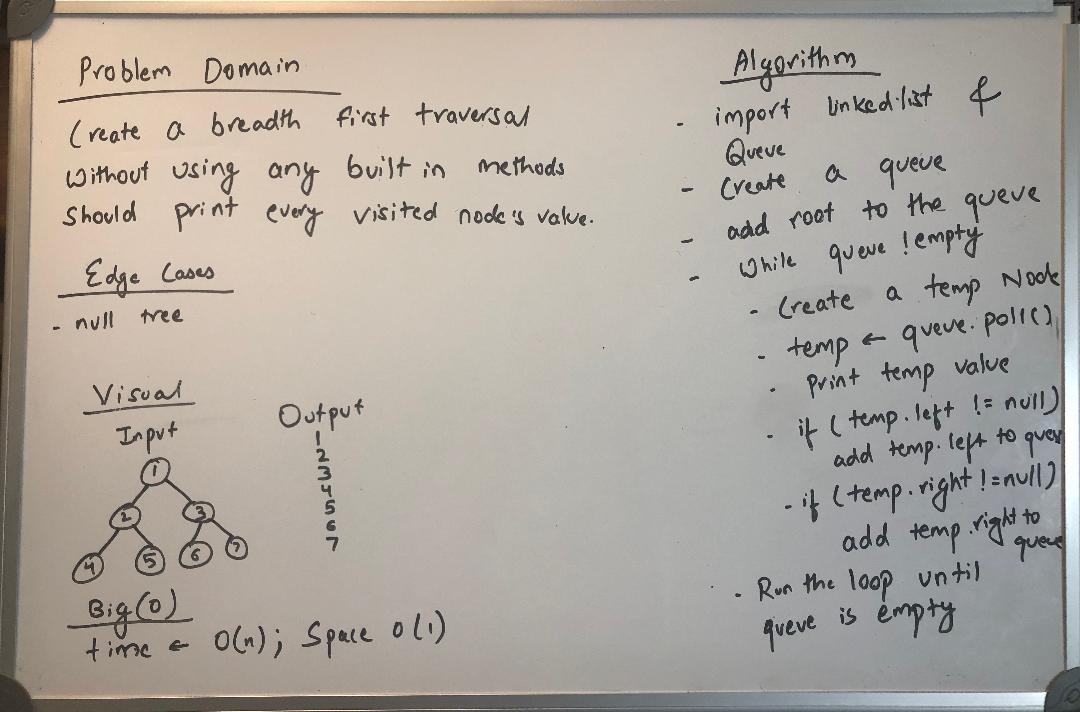 Problem Domain
Create a breadth first traversal
without using any built in methods
Should print every visited node's value.
Edge Cases
- null tree
Visual
Input
1
2 3
4 5 6 7
Output
1
2
3
4
5
6
7
Big(O)
time ← O(n); Space O(1)
Algorithm
- import linked list &
Queue
- Create a queue
- add root to the queue
- While queue !empty
- Create a temp Node
- temp ← queue.poll()
- Print temp value
- if (temp.left != null)
add temp.left to queu
- if (temp.right !=null)
add temp.right to
queue
- Run the loop until
queue is empty